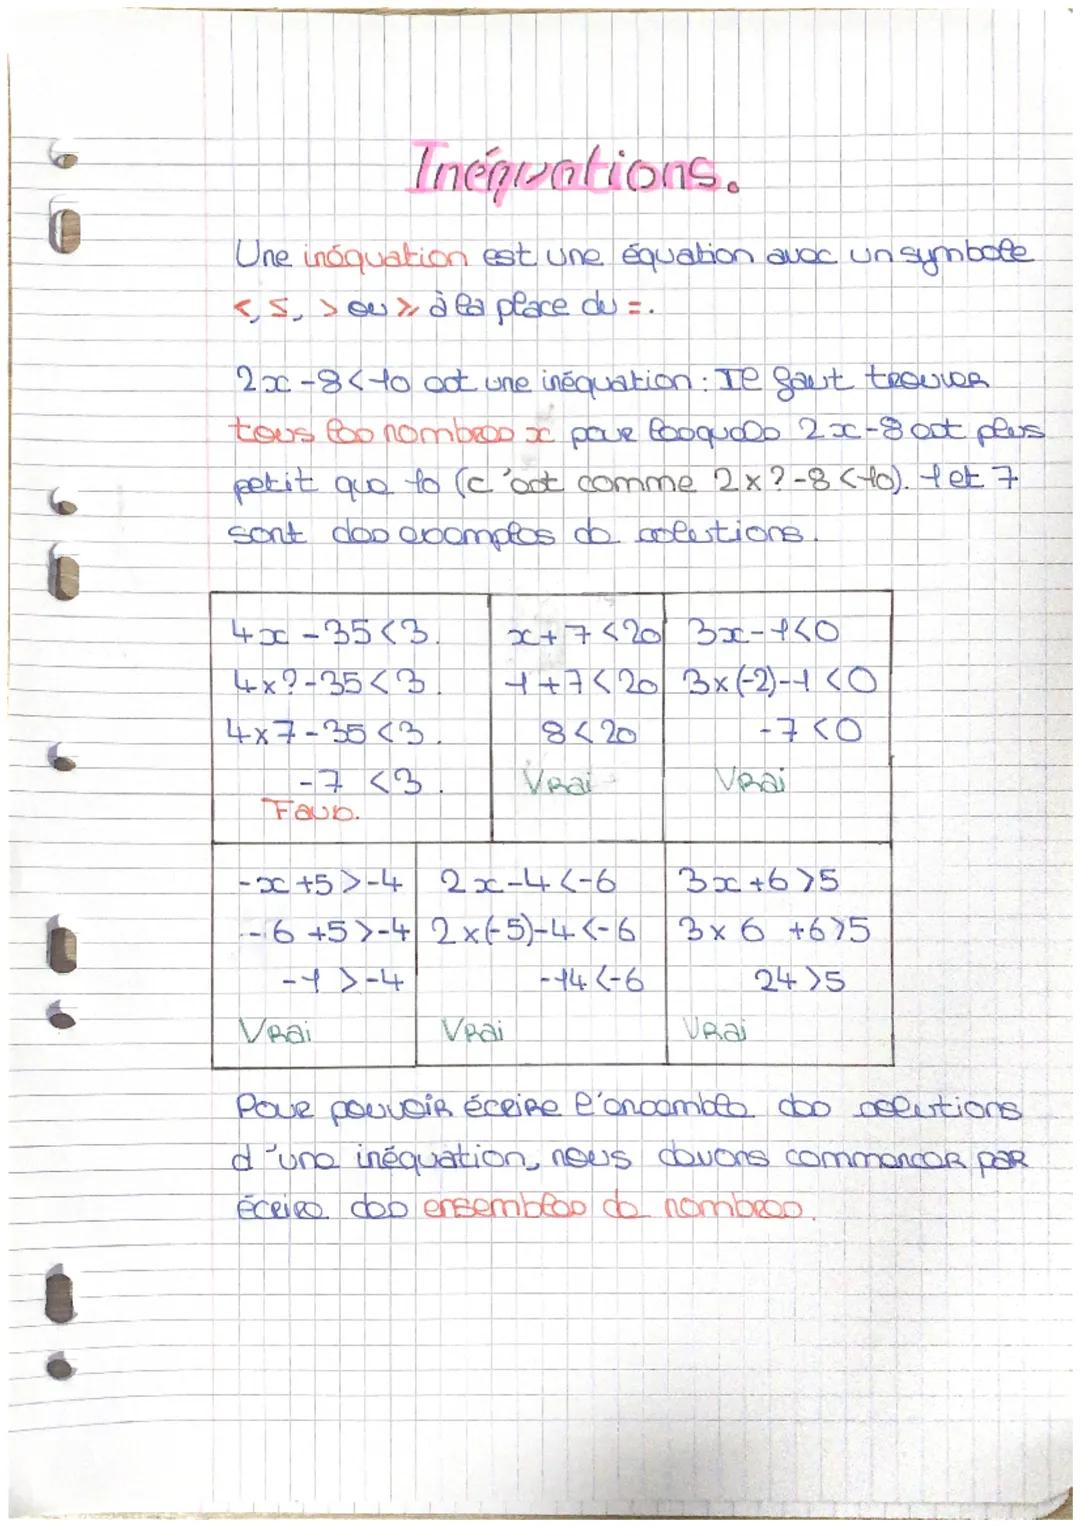 Inéquations.
Une inéquation est une équation avec un symbole
<, ≤, > ou ≥ à la place du =.
2x - 8 < 10 est une inéquation : Il faut trouver
tous les nombres x pour lesquels 2x - 8 est plus
petit que 10 (c'est comme 2x? - 8 < 10). 1 et 7
sont des exemples de solutions.
4x - 35 < 3.
4x? - 35 < 3.
4x7 - 35 < 3.
-7 < 3.
Faux.
x + 7 < 20
1 + 7 < 20
8 < 20
Vrai
3x - 1 < 0
3x(-2) - 1 < 0
-7 < 0
Vrai
-x + 5 > -4
-6 + 5 > -4
-1 > -4
Vrai
2x - 4 < -6
2x(-5) - 4 < -6
-14 < -6
Vrai
3x + 6 > 5
3x 6 + 6 > 5
24 > 5
Vrai
Pour pouvoir écrire l'ensemble des solutions
d'une inéquation, nous devons commencer par
écrire des ensembles de nombres.